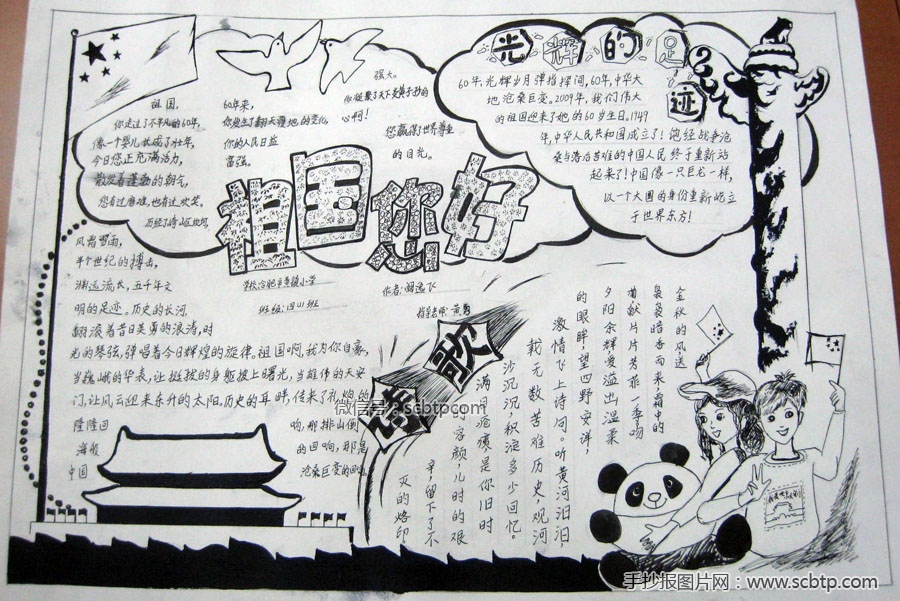 祖国您好
祖国,
你走过了不平凡的60年,
像一个婴儿长成了壮年,
今日您正充满活力,
散发着蓬勃的朝气,
您有过磨难,也有过欢笑,
60年来,
你发生了翻天覆地的变化
你的人民日益
富强。
强大。
心啊!
您赢得了世界尊重
的目光。
风霜雪雨,
半个世纪的搏击,
渊远流长,五千年文
明的足迹。历史的长河
翻滚着昔日英勇的浪涛,时
光的琴弦,弹唱着今日辉煌的旋律。祖国啊,我为你自豪,
当巍峨的华表,让挺拔的身躯披上曙光,当雄伟的天安
门,让风云迎来东升的太阳,历史的耳畔,传来了礼炮的
隆隆回
响,那排山倒
海般
的回响,那是
中国
沧桑巨变的回响
班级:四(1)班
作者:
指导老师:黄勇
光辉的足迹
60年,光辉岁月弹指挥间,60年,中华大
地沧桑巨变。2009年,我们伟大
的祖国迎来了她的60岁生日。1949
年,中华人民共和国成立了!饱经战争沧
桑与落后苦难的中国人民终于重新站
起来了!中国像一只巨龙一样,
以一个大国的身份重新屹立
于世界东方!
诗歌
金秋的风,送
袅袅暗香而来,霜中的
菊献片片芳菲一季吻
夕阳余辉,爱溢出温柔
的眼眸,望四野安详,
激情飞上诗句。听黄河汩汩,
载无数苦难历史,观河
沙沉沉,积淀多少回忆。
满目疮痍是你旧时
容颜,儿时的艰
辛,留下了不
灭的烙印
微信号:scbtpcom
手抄报图片网:www.scbtp.com